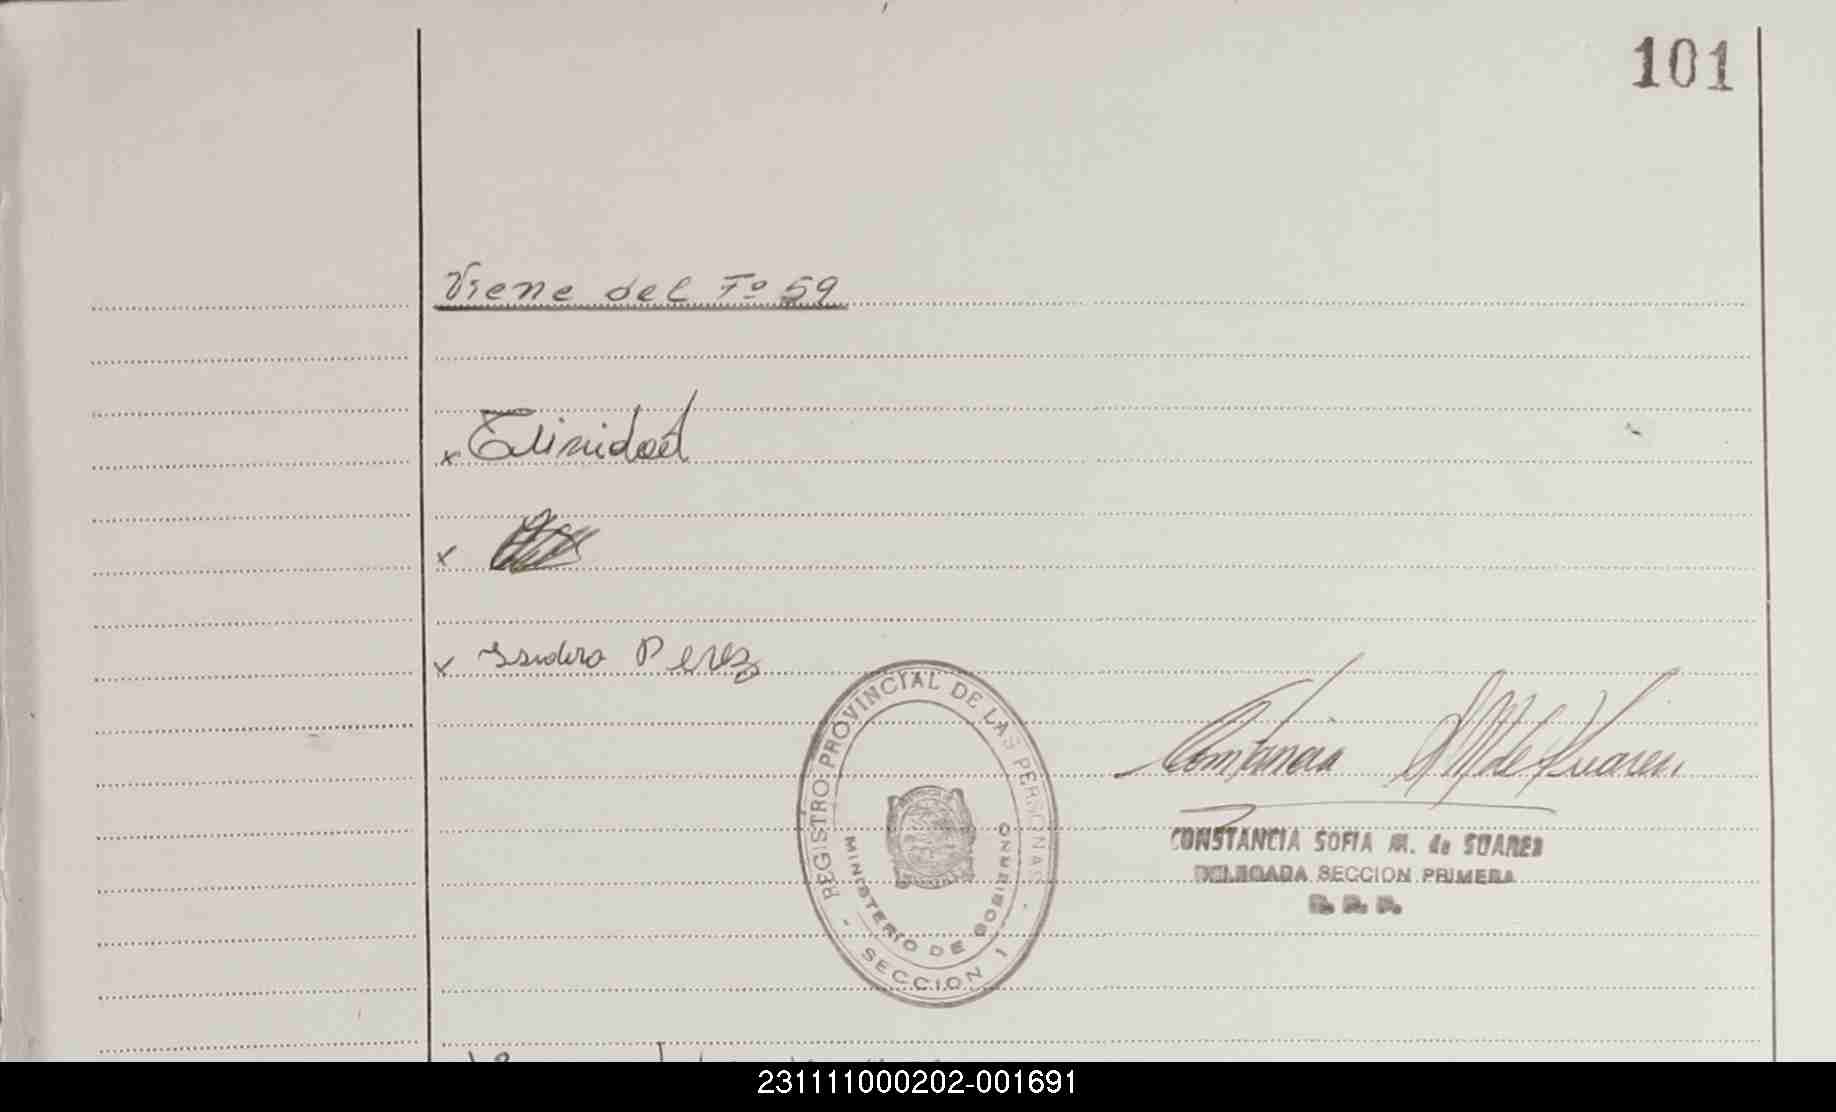 101
Viene del Fº 59
x Trinidad
x
x Isidro Perez
REGISTRO PROVINCIAL DE LAS PERSONAS
MINISTERIO DE GOBIERNO
- SECCION 1 -
Constancia S M de Suarez
CONSTANCIA SOFIA M. de SUAREZ
DELEGADA SECCION PRIMERA
231111000202-001691